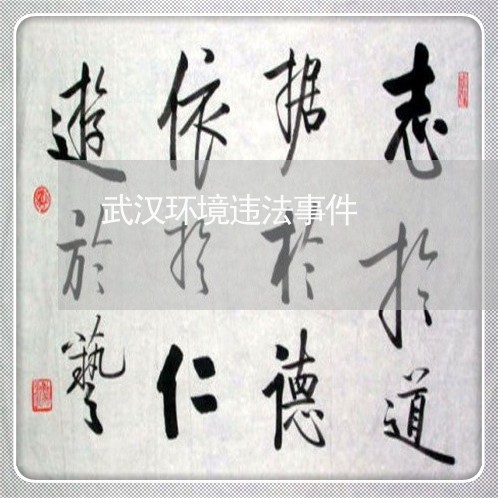 志於道
据於德
依於仁
遊於藝
武汉环境违法事件